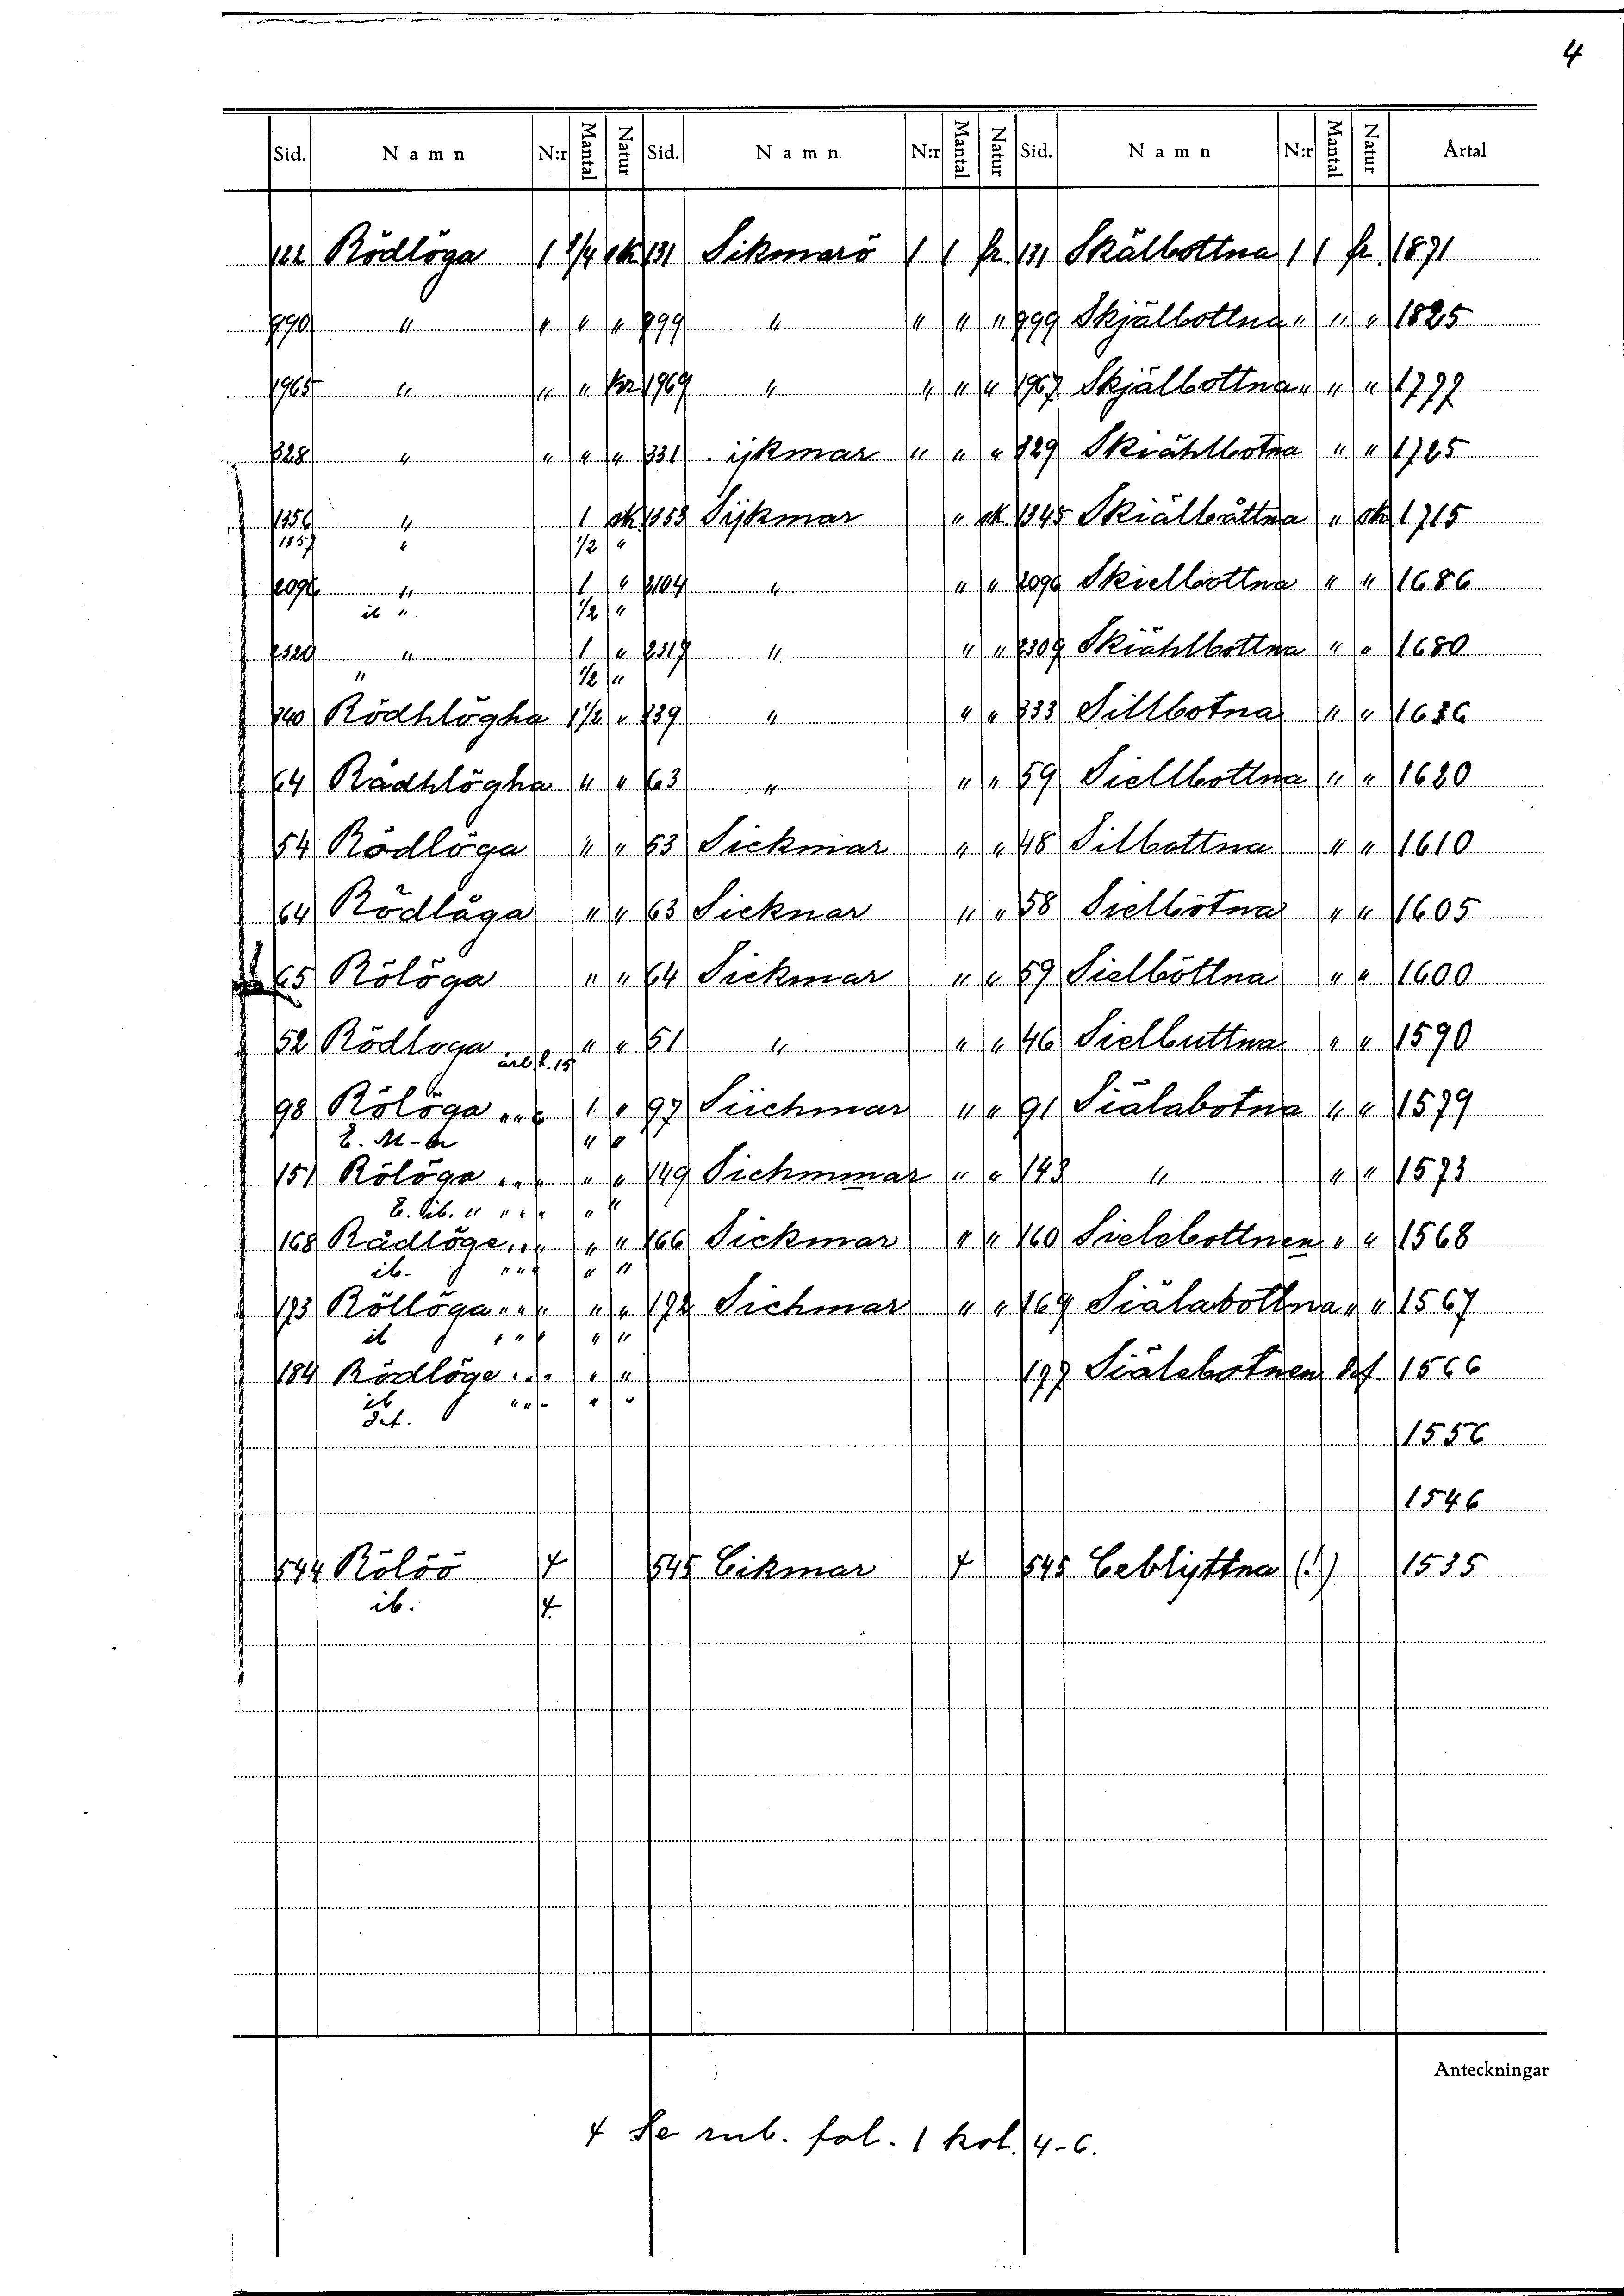 4
Sid. Namn N:r Mantal Natur Sid. Namn N:r Mantal Natur Sid. Namn N:r Mantal Natur Årtal
122 Rödlöga 1 3/4 sk 131 Sikmarö 1 1 fr. 131 Skälbottna 1 1 fr. 1871
990 " " " " 999 " " " " 999 Skjälbottna " " " 1825
1965 " " " kr 1969 " " " " 1967 Skjälbottna " " " 1777
828 " " " " 831 . ijkmar " " " 829 Skiählbotna " " 1725
1356 " 1 sk 1353 Sijkmar " sk 1345 Skiälbåttna " sk 1715
1357 " 1/2 "
2096 " 1 " 2104 " " " 2096 Skielbottna " " 1686
ib " 1/2 "
2320 " 1 " 2317 " " " 2309 Skiählbottna " " 1680
" 1/2 "
740 Rödhlögha 1 1/2 " 739 " " " 733 Sillbotna " " 1636
64 Rådhlögha " " 63 " " " 59 Siellbottna " " 1620
54 Rödlöga " " 53 Sickmar " " 48 Silbottna " " 1610
64 Rödlåga " " 63 Sicknar " " 58 Sielbötna " " 1605
65 Rölöga " " 64 Sickmar " " 59 Sielböttna " " 1600
52 Rödloga " " 51 " " " 46 Sielbuttna " " 1590
98 Rölöga " " " 1 " 97 Siichmar " " 91 Siälabotna " " 1579
E. M-br " "
151 Rölöga " " " " " 149 Sichmmar " " 143 " " " 1573
E. Sib. " " " " " "
168 Rådlöge " " " " 166 Sickmar " " 160 Sielebottnen " " 1568
ib. " " " " "
173 Röllöga " " " " " 172 Sichmar " " 169 Siälabottna " " 1567
ib " " " " "
184 Rödlöge " " " " " 197 Siälebotnen def. 1566
ib " " " " "
def.
1556
1546
544 Rölöö + 545 Cikmar + 545 Ceblyttna (!) 1535
ib. +
Anteckningar
+ Se rub. fol. 1 kol. 4-6.